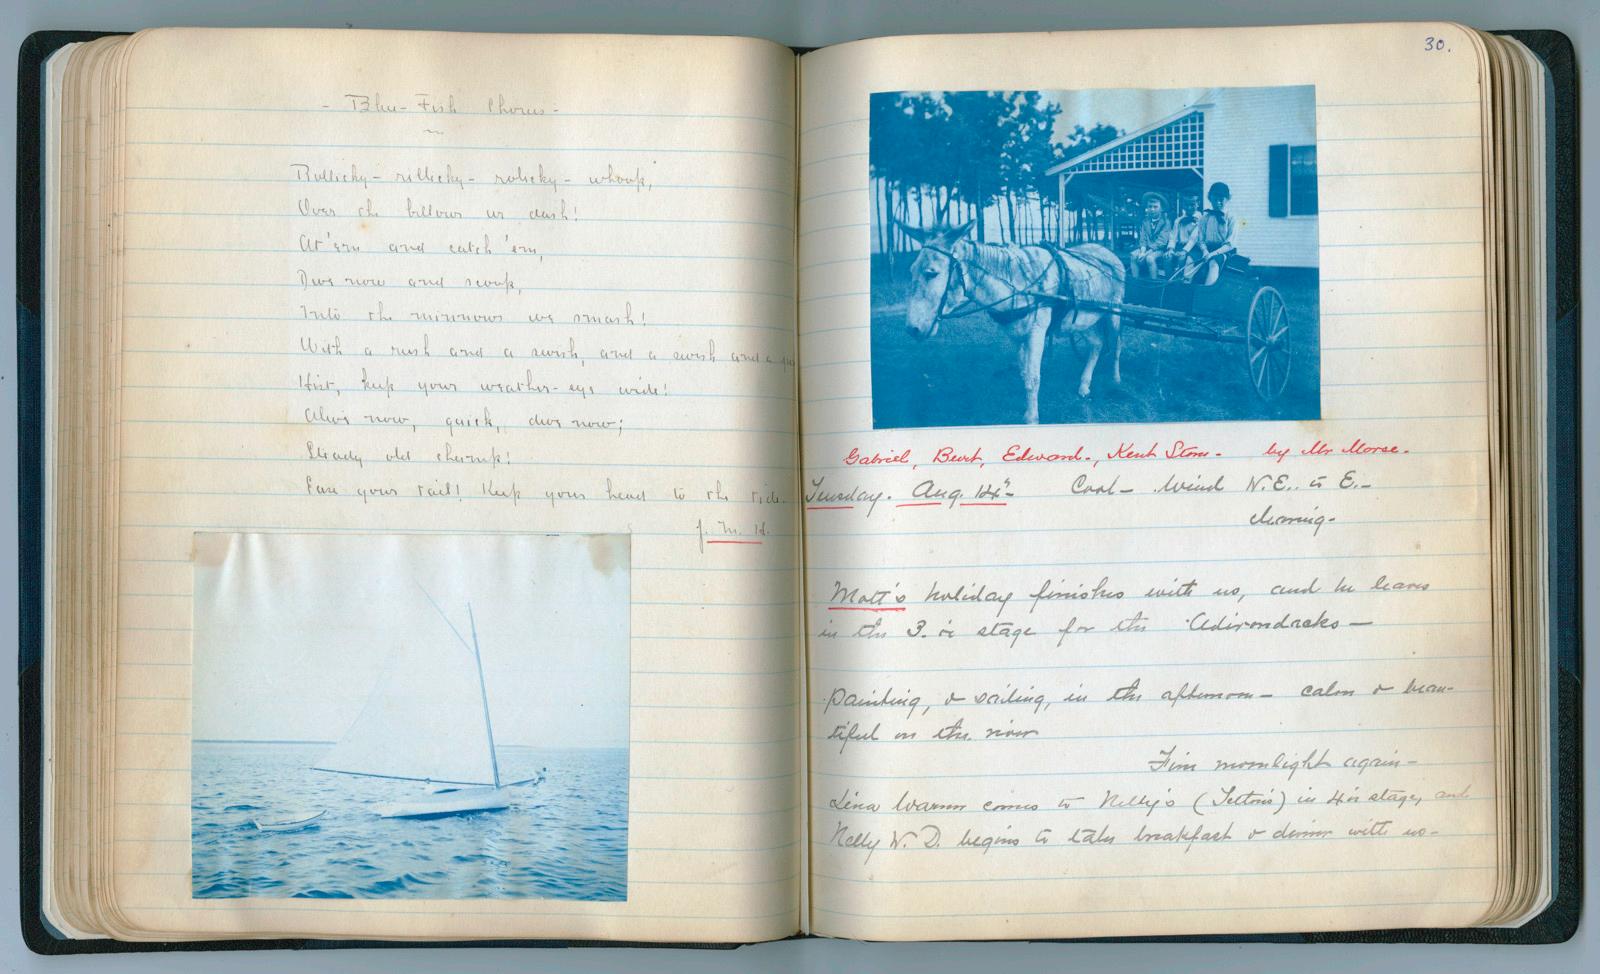 - Blue-Fish Chorus -
Rollicky - rillicky - rolicky - whoop,
Over the billows we dash!
At 'em and catch 'em,
Dive now and scoop,
Into the minnows we smash!
With a rush and a swish, and a swish and a
Hist, keep your weather-eye wide!
Alive now, quick, dive now;
Steady old chump!
Ease your tail! Keep your head to the tide.
J. M. H.
30.
Gabriel, Beurt, Edward, Kent Stow - by Mr Morse.
Tuesday. Aug. 14th - Cool - Wind N.E. to E. -
clearing -
Mott's holiday finishes with us, and he leaves
in the 3. o'c stage for the Adirondacks -
Painting, & sailing, in the afternoon - calm & beau-
tiful on the river
Fine moonlight again -
Lina Warren comes to Nelly's (Tetton's) in 4 o'c stage, and
Nelly W. D. begins to take breakfast & dinner with us -